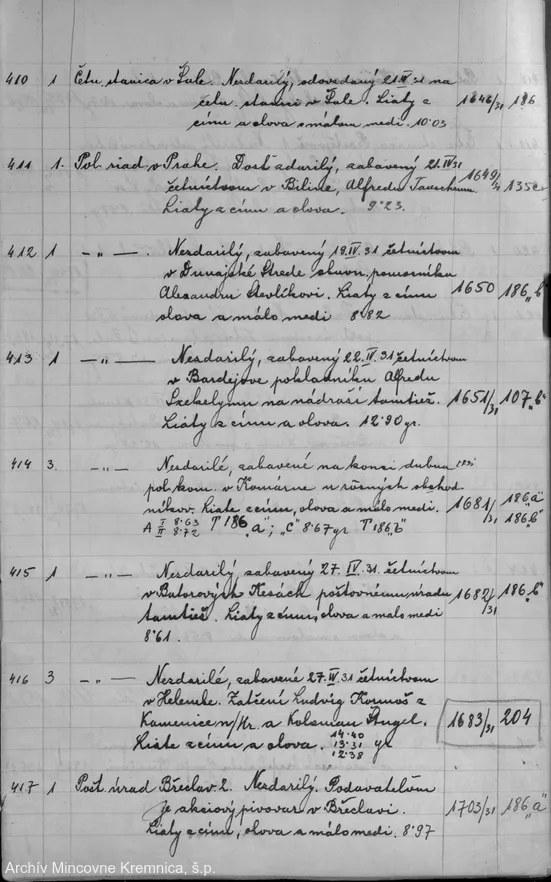 410 1 Četn. stanica v Šale. Nezdarilý, odovzdaný 21.IV.31 na
četn. stanici v Šale. Liaty z 1648/31 186
cínu a olova s málom medi. 10·03
411 1. Pol. riad. v Prahe. Dosť zdarilý, zabavený 21.IV.31
četníctvom v Biline, Alfredu 1649/31 135
Liaty z cínu a olova. 9·23.
412 1 -„- . Nezdarilý, zabavený 19.IV.31 četníctvom
v Dunajské Strede pomocníku
Alexandru Liaty z cínu 1650 186„b"
olova a málo medi 8·82
413 1 -„- Nezdarilý, zabavený 22.IV.31 četníctvom
v Bardejove pokladníku Alfredu
Szekelymu na nádraží tamtiež. 1651/31 107„b"
Liaty z cínu a olova. 12·90 gr.
414 3. -„- Nezdarilé, zabavené na konci dubna 1931
pol. kom. v Komárne u rôznych obchod-
níkov. Liate z cínu, olova a málo medi. 1681/31 186„a" 186„b"
A I 8·63 II 8·72 T 186„a"; „C" 8·67 gr T 186„b"
415 1 -„- Nezdarilý, zabavený 27.IV.31. četníctvom
v Batorových Kesách poštovnému úradu 1682/31 186„b"
tamtiež. Liaty z cínu, olova a málo medi
8·61.
416 3 -„- Nezdarilé, zabavené 27.IV.31 četníctvom
v Zatčení Ludvig z
Kamenice n/Hr. a Koloman Štugel. 1683/31 204
Liate z cínu a olova. 14·40 13·31 12·38 gr
417 1 Pošt. úrad Břeclav 2. Nezdarilý. Podavateľom
je akciový pivovar v Břeclavi. 1703/31 186„a"
Liaty z cínu, olova a málo medi. 8·97
Archív Mincovne Kremnica, š.p.